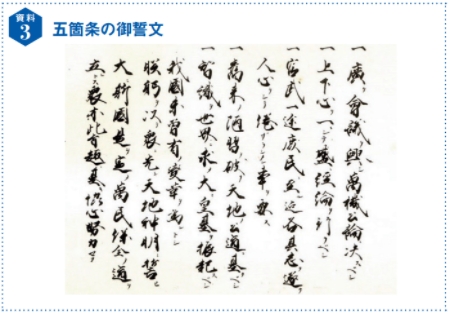 資料
3
五箇条の御誓文
一 廣ク會議ヲ興シ萬機公論ニ決スヘシ
一 上下心ヲ一ニシテ盛ニ經綸ヲ行フヘシ
一 官武一途庶民ニ至ル迄各其志ヲ遂ケ
人心ヲシテ倦マサラシメン事ヲ要ス
一 舊来ノ陋習ヲ破リ天地ノ公道ニ基クヘシ
一 智識ヲ世界ニ求メ大ニ皇基ヲ振起スヘシ
我國未曾有ノ變革ヲ為ントシ
朕躬ヲ以テ衆ニ先シ天地神明ニ誓ヒ
大ニ斯國是ヲ定メ萬民保全ノ道ヲ
立ントス衆亦此旨趣ニ基キ協心努力セヨ